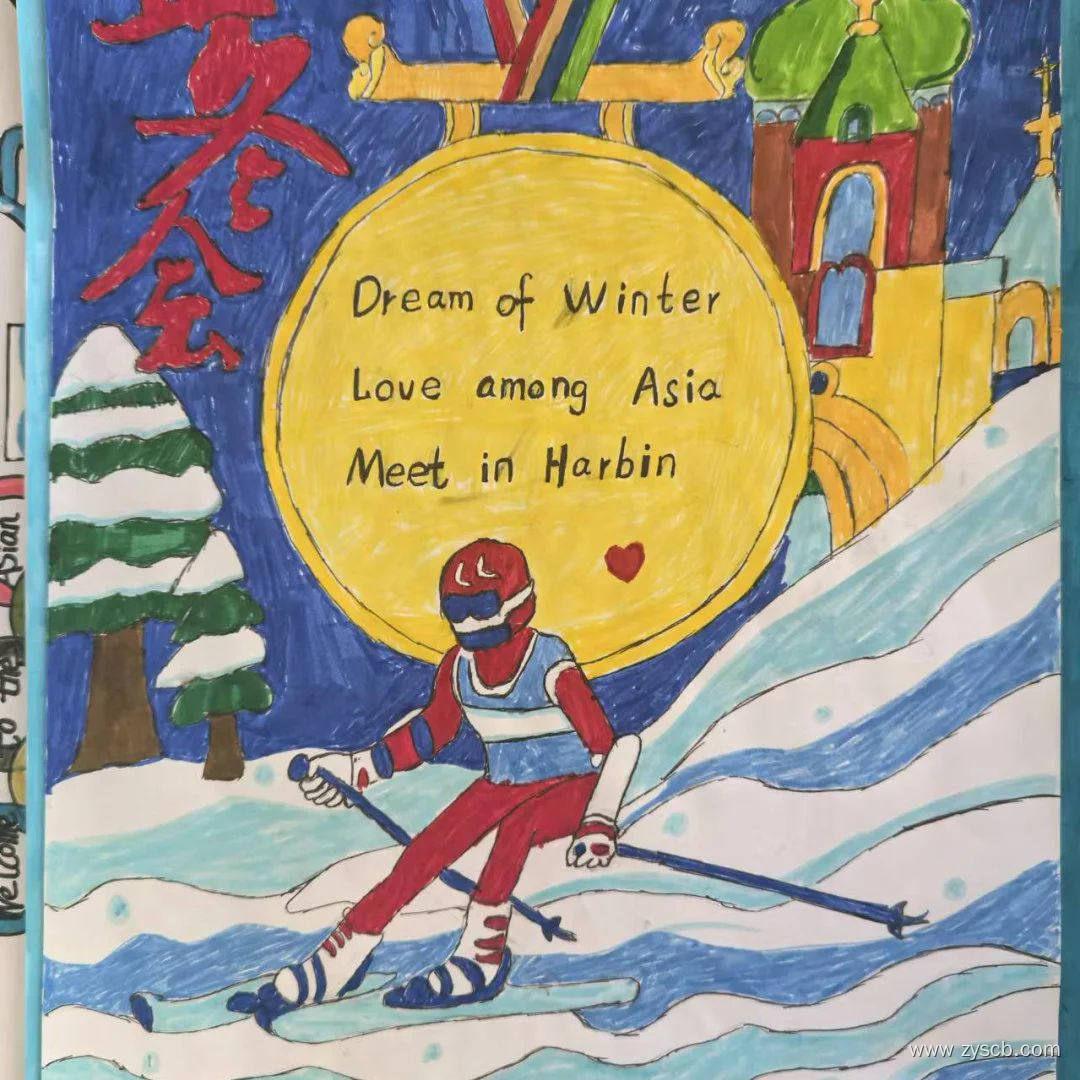 亚冬会
Dream of Winter
Love among Asia
Meet in Harbin
Welcome to the Asian
www.zyscb.com